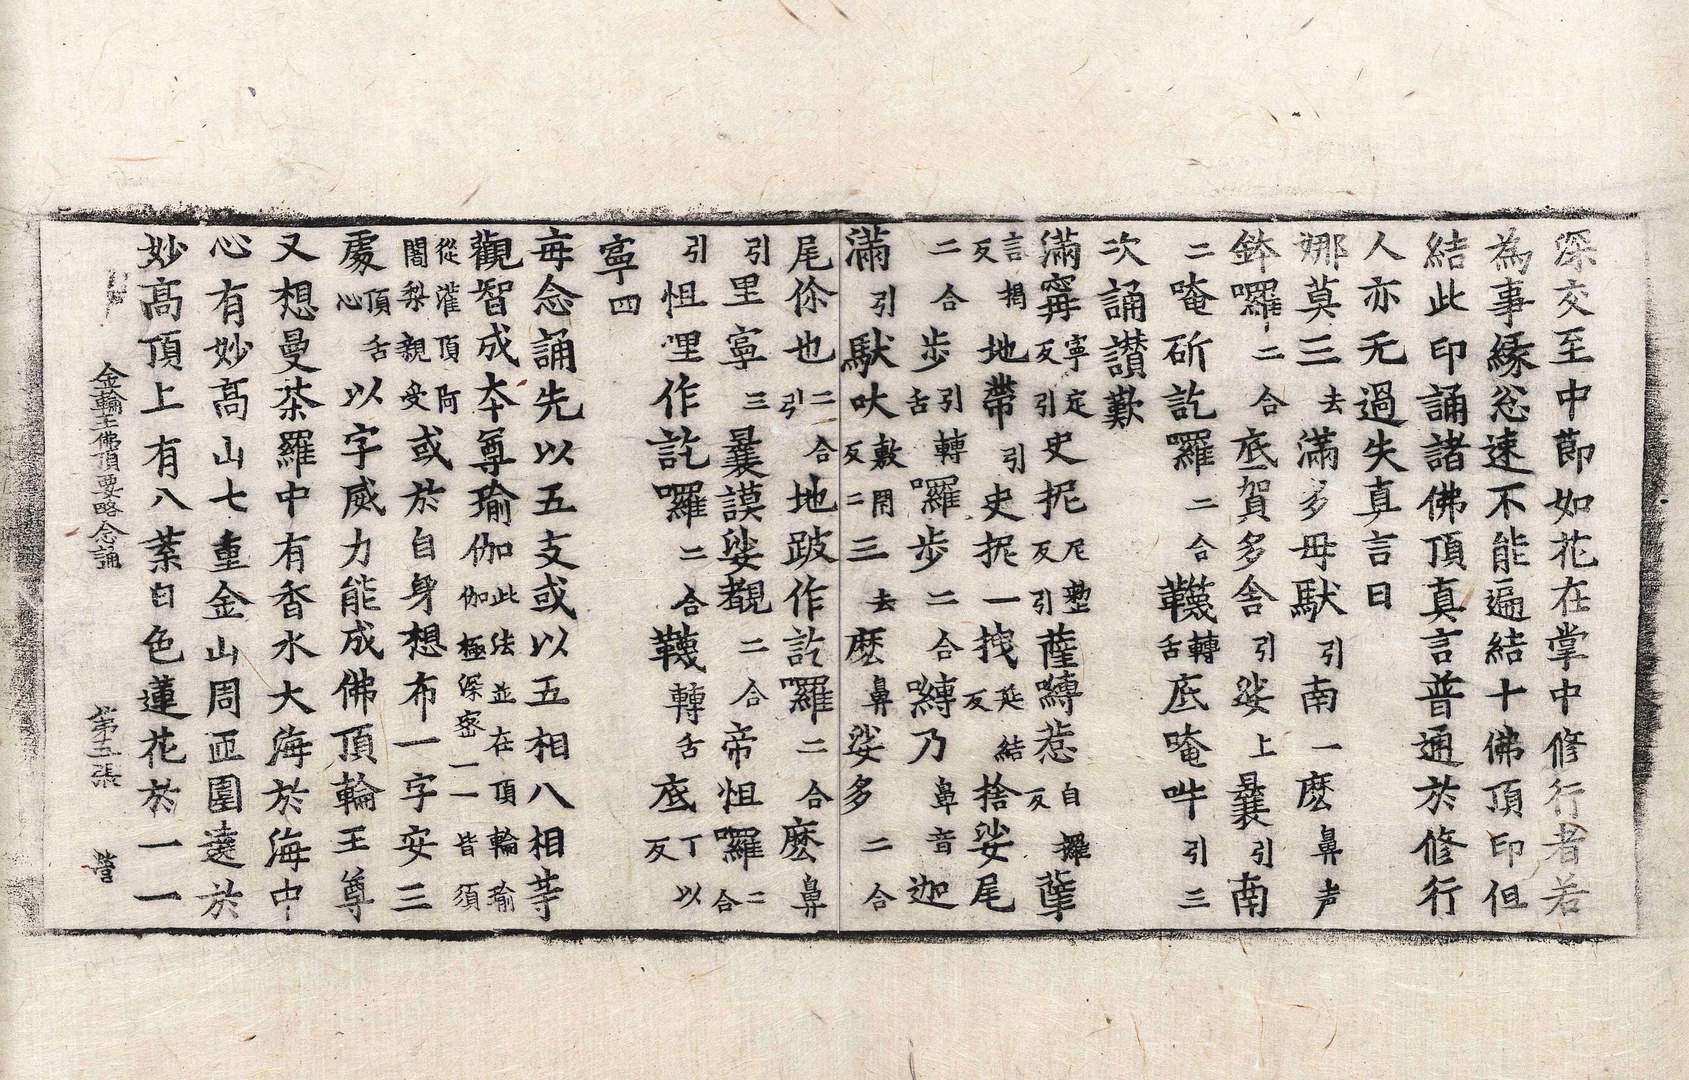 深交至中節如花在掌中修行者若
為事緣忩速不能遍結十佛頂印但
結此印誦諸佛頂真言普通於修行
人亦无過失真言曰
娜莫三去滿多毋馱引南一麽鼻声
鉢囉二合底賀多舍引娑上曩引南
二唵斫訖囉二合韈轉舌底唵吽引三
次誦讚歎
滿寗寧定反引史抳尼整反引薩嚩惹自攞反葷
言揭反地帶引史抳一拽延結反捨娑尾
二合步引轉舌囉步二合嚩乃鼻音迦
滿引馱吠敷罔反二三去麽鼻娑多二合
尾你也二合引地跛作訖囉二合麽鼻
引里寧三曩謨娑覩二合帝怛囉二合
引怛哩作訖囉二合韈轉舌底丁以反
寧四
每念誦先以五支或以五相八相䓁
觀智成夲尊瑜伽此法並在頂輪瑜伽極深密一一皆須
從灌頂阿闍梨親受或於自身想布一字安三
處頂舌心以字威力能成佛頂輪王尊
又想曼荼羅中有香水大海於海中
心有妙高山七重金山周匝圍遶於
妙高頂上有八葉白色蓮花於一一
金輪王佛頂要略念誦 第五張